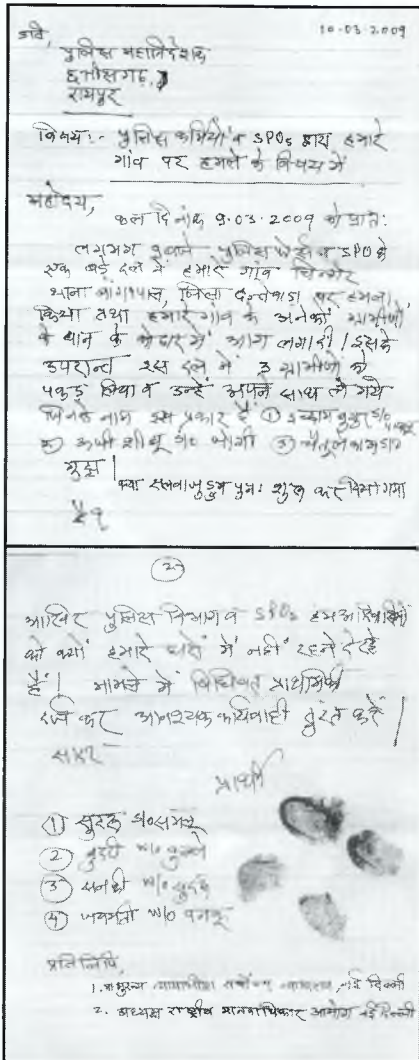 प्रति, 10.03.2009
पुलिस महानिदेशक
छत्तीसगढ़,
रायपुर
विषय:- पुलिस कर्मियों व SPOs द्वारा हमारे
गांव पर हमले के विषय में
महोदय,
कल दिनांक 9.03.2009 को प्रातः
लगभग बजे पुलिस व SPO के
एक बड़े दल ने हमारे गांव
थाना , जिला दन्तेवाड़ा पर हमला
किया तथा हमारे गांव के अनेकों ग्रामीणों
के धान के में आग लगा दी। इसके
उपरान्त इस दल ने 3 ग्रामीणों को
पकड़ लिया व उन्हें अपने साथ ले गये
जिनके नाम इस प्रकार हैं ① S/o
② जोगी ③

क्या सलवा जुडुम पुनः शुरू कर दिया गया
है?
②
आखिर पुलिस विभाग व SPOs हम आदिवासियों
को क्यों हमारे घरों में नहीं रहने दे रहे
हैं। मामले में विधिवत् प्राथमिकी
दर्ज कर आवश्यक कार्यवाही तुरंत करें।
सादर
प्रार्थी
①
② W/o
③ W/o
④ W/o
प्रतिलिपि,
1. मुख्य न्यायाधीश सर्वोच्च न्यायालय, नई दिल्ली
2. अध्यक्ष राष्ट्रीय मानवाधिकार आयोग नई दिल्ली